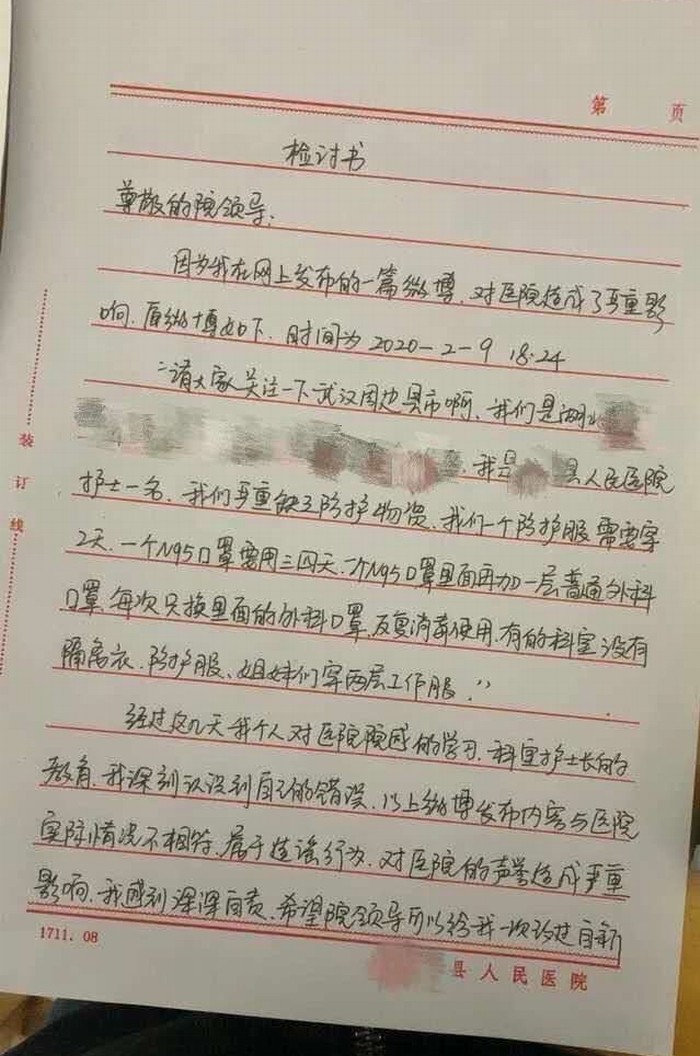 第 页
检讨书
尊敬的院领导:
因为我在网上发布的一篇微博,对医院造成了严重影
响.原微博如下.时间为2020-2-9 18:24
“请大家关注一下武汉周边县市啊、我们是湖北
我是 县人民医院
护士一名.我们严重缺乏防护物资.我们一个防护服需要穿
2天.一个N95口罩要用三四天.个N95口罩里面再加一层普通外科
口罩.每次只换里面的外科口罩.反复消毒使用.有的科室没有
隔离衣.防护服、姐妹们穿两层工作服.”
经过这几天我个人对医院院感的学习.科室护士长的
教育.我深刻认识到自己的错误.以上微博发布内容与医院
实际情况不相符.属于造谣行为.对医院的声誉造成严重
影响.我感到深深自责.希望院领导可以给我一次改过自新
装订线
1711.08
县人民医院